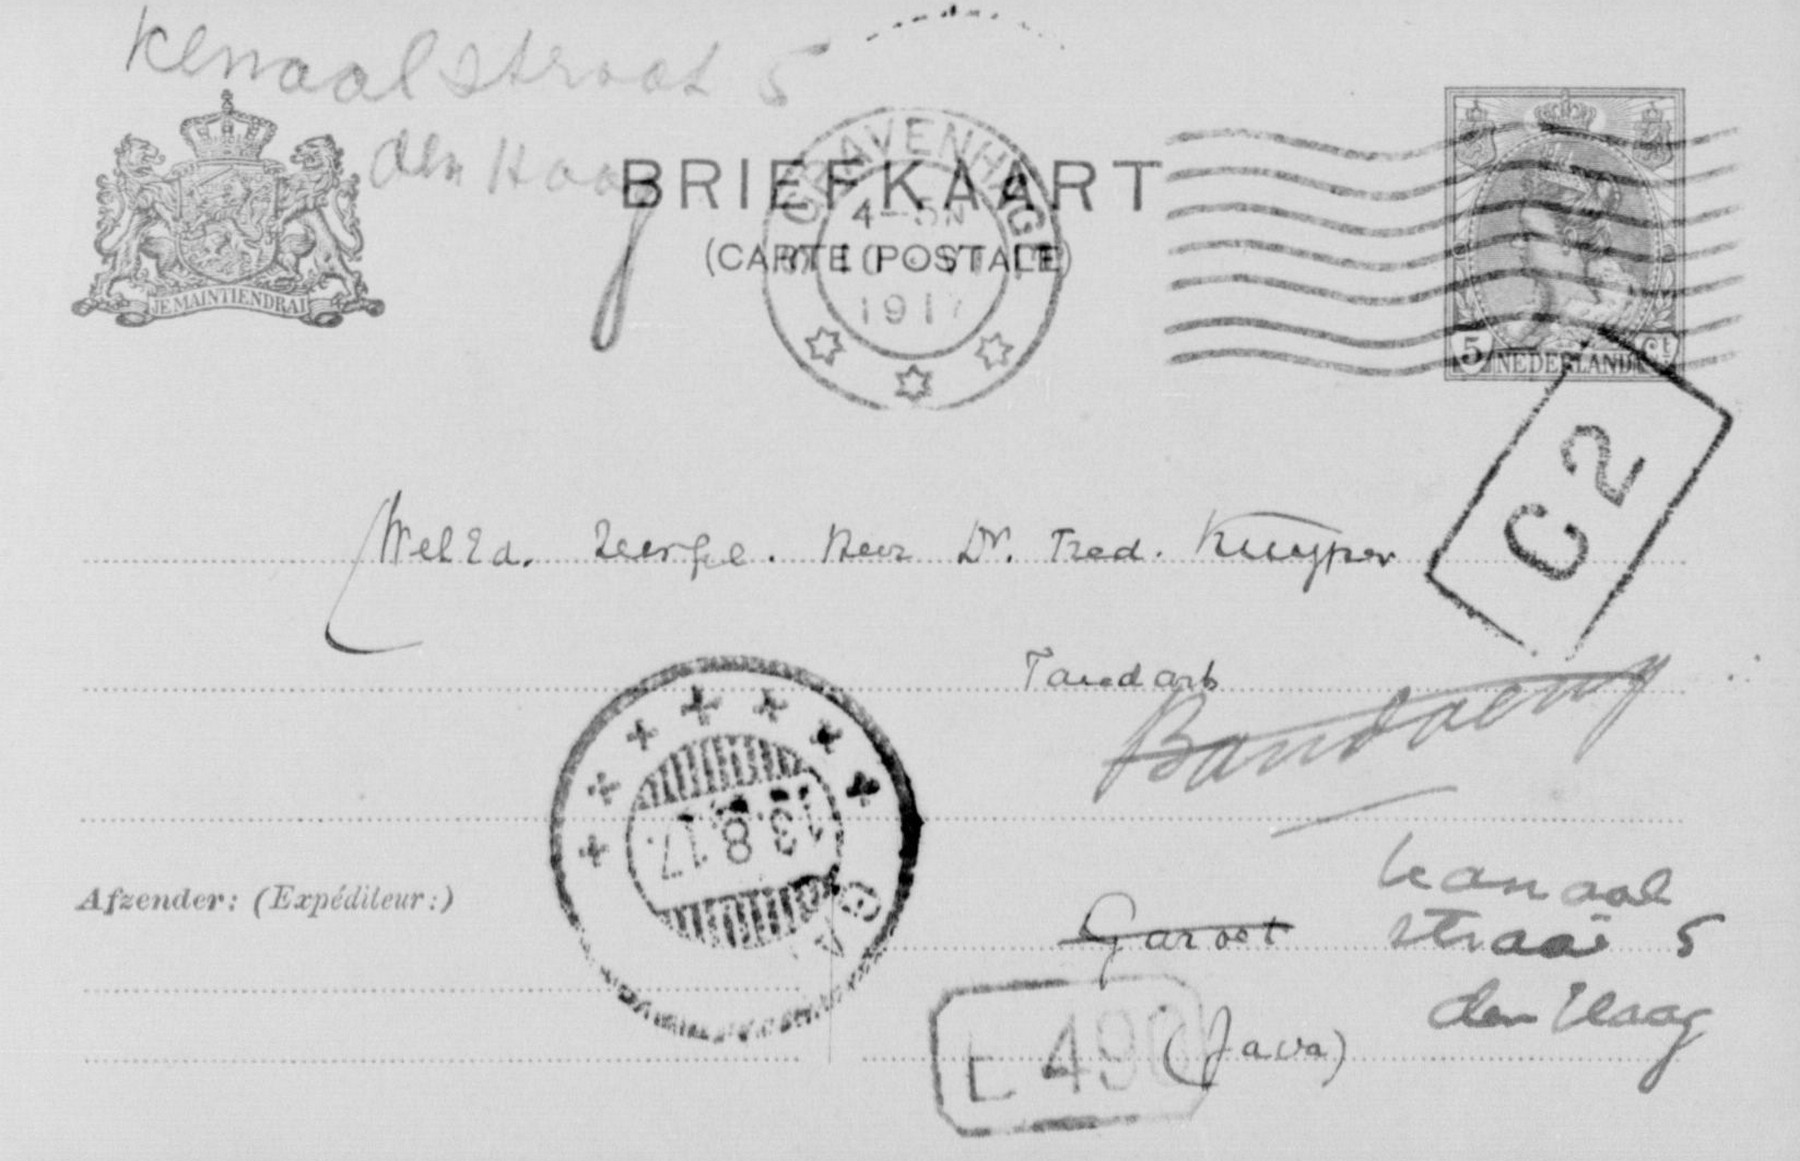 Kanaalstraat 5
den Haag
BRIEFKAART
(CARTE POSTALE)
JE MAINTIENDRAI
'S GRAVENHAGE
4-5N
1917
5 NEDERLAND Ct
C2
WelEd. Zeergel. Heer Dr. Fred. Kuyper
Tandarts
Bandoeng
13.8.17.
GA
Afzender: (Expéditeur:)
Garoet
Kanaal
straat 5
den Haag
L 490
(Java)